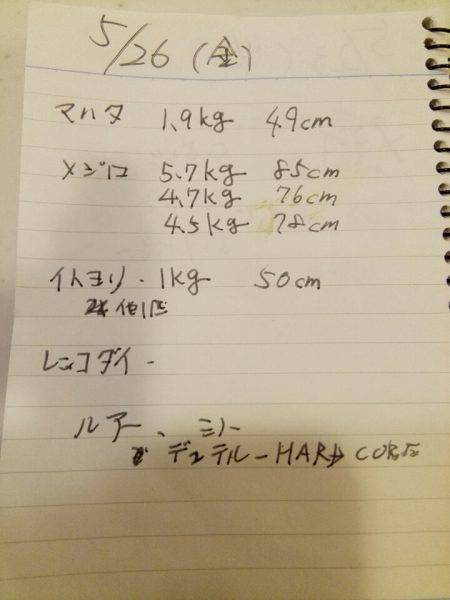 5/26 (金)
マハタ 1.9kg 49cm
メジロ 5.7kg 85cm
4.7kg 76cm
4.5kg 78cm
イトヨリ. 1kg 50cm
他1匹
レンコダイ -
ルアー、ミノー
デュエル-HARD CORE